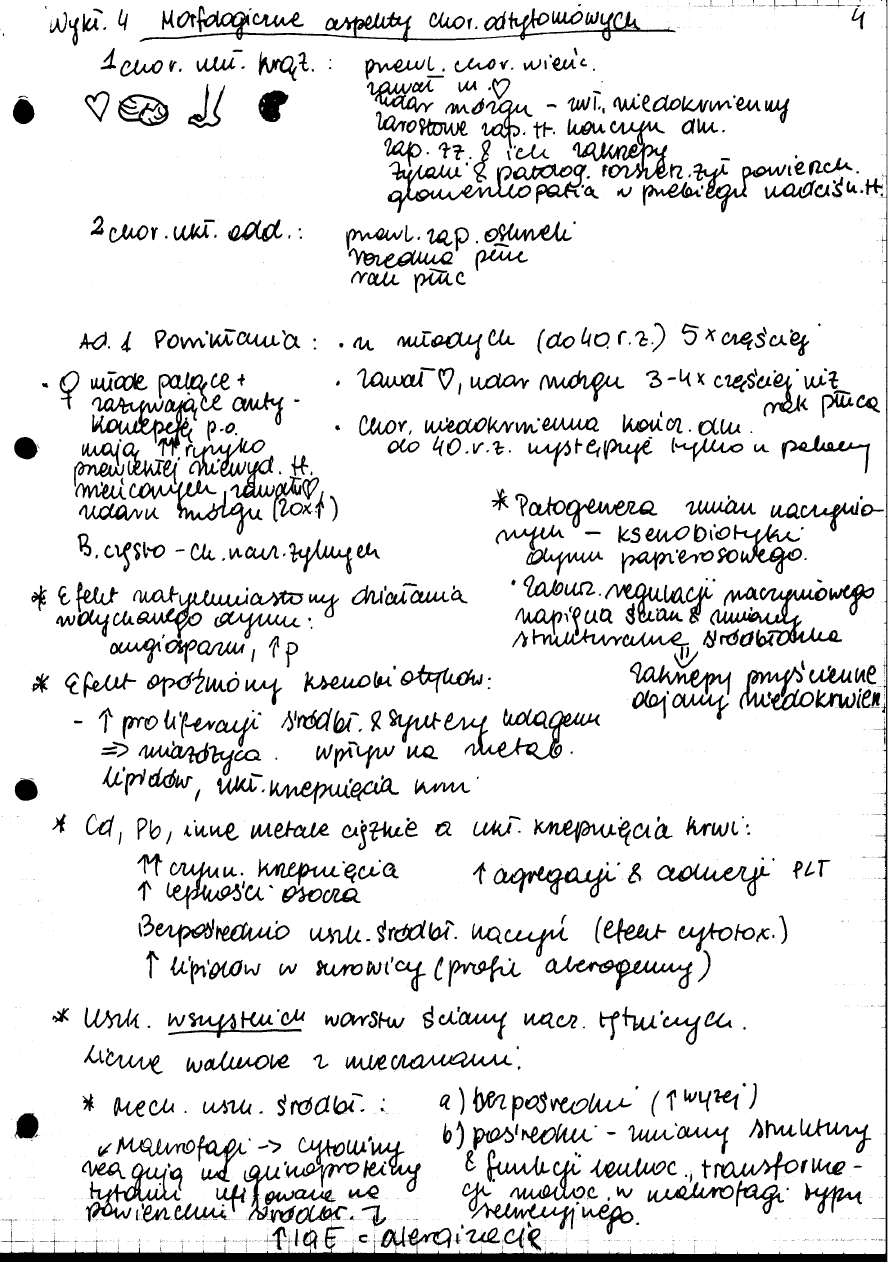 Wykł. 4 Morfologiczne aspekty chor. odtytoniowych 4
1 chor. ukł. krąż.: przewl. chor. wieńc.
zawał m. ♡
udar mózgu - zwł. niedokrwienny
zarostowe zap. tt. kończyn dln.
zap. żż. & ich zakrzepy
żylaki & patolog. rozszerz. żył powierzch.
glomerulopatia w przebiegu nadciśn. tt.
2 chor. ukł. odd.: przewl. zap. oskrzeli
rozedma płuc
rak płuc
Ad. 1 Powikłania: • u młodych (do 40. r. ż.) 5 x częściej
• ♀ młode palące +
zażywające anty-
koncepcję p.o.
mają ↑↑ ryzyko
przewlekłej niewyd. tt.
wieńcowych, zawału ♡,
udaru mózgu (20x↑)
B. często - ch. zakrz. żylnych
• zawał ♡, udar mózgu 3-4x częściej niż
rak płuca
• chor. niedokrwienna kończ. dln.
do 40. r. ż. występuje tylko u palaczy
* Patogeneza zmian naczynio-
nych - ksenobiotyki
dymu papierosowego.
• Zaburz. regulacji naczyniowego
napięcia ścian & zmiany
strukturalne śródbłonka
⇓
zakrzepy przyścienne
dojdzmy niedokrwien.
* Efekt natychmiastowy działania
wdychanego dymu:
angiospazm, ↑ p
* Efekt opóźniony ksenobiotyków:
- ↑ proliferacji śródbł. & syntezy kolagenu
⇒ miażdżyca. wpływ na metab.
lipidów, ukł. krzepnięcia krwi
* Cd, Pb, inne metale ciężkie a ukł. krzepnięcia krwi:
↑↑ czynn. krzepnięcia ↑ agregacji & adhezji PLT
↑ lepkości osocza
Bezpośrednio uszk. śródbł. naczyń (efekt cytotox.)
↑ lipidów w surowicy (profil aterogenny)
* Uszk. wszystkich warstw ściany nacz. tętniczych.
Liczne walkowe z mechanizmami.
* Mech. uszk. śródbł.: a) bezpośredni (↑ wyżej)
b) pośredni - zmiany struktury
& funkcji leukoc., transforma-
cji monoc. w makrofagi typu
sekrecyjnego.
↙ Makrofagi -> cytokiny
reagują na glikoproteiny
tytoniu ulokowane na
powierzchni śródbł. ↴
↑ IgE = alergizacja